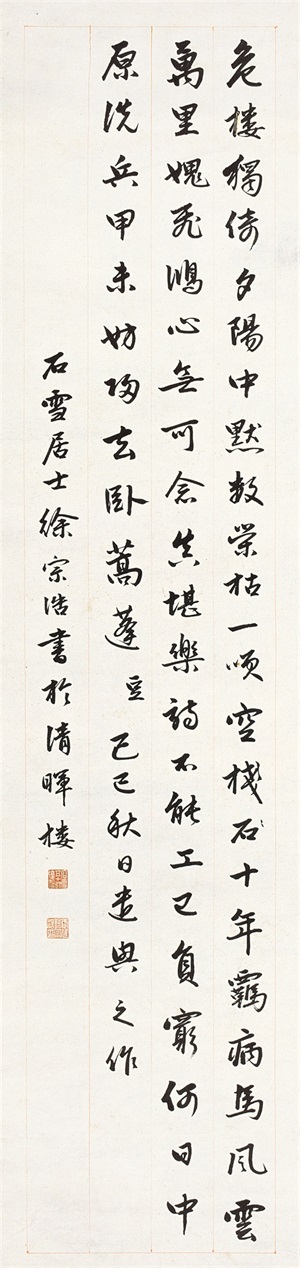 危楼獨倚夕陽中默數榮枯一嘆空棧石十年羈病馬風雲
萬里愧飛鴻心無可念真堪樂詩不能工已負窮何日中
原洗兵甲未妨歸去卧蒿蓬 己巳秋日遣興之作
石雪居士徐宗浩書於清暉楼